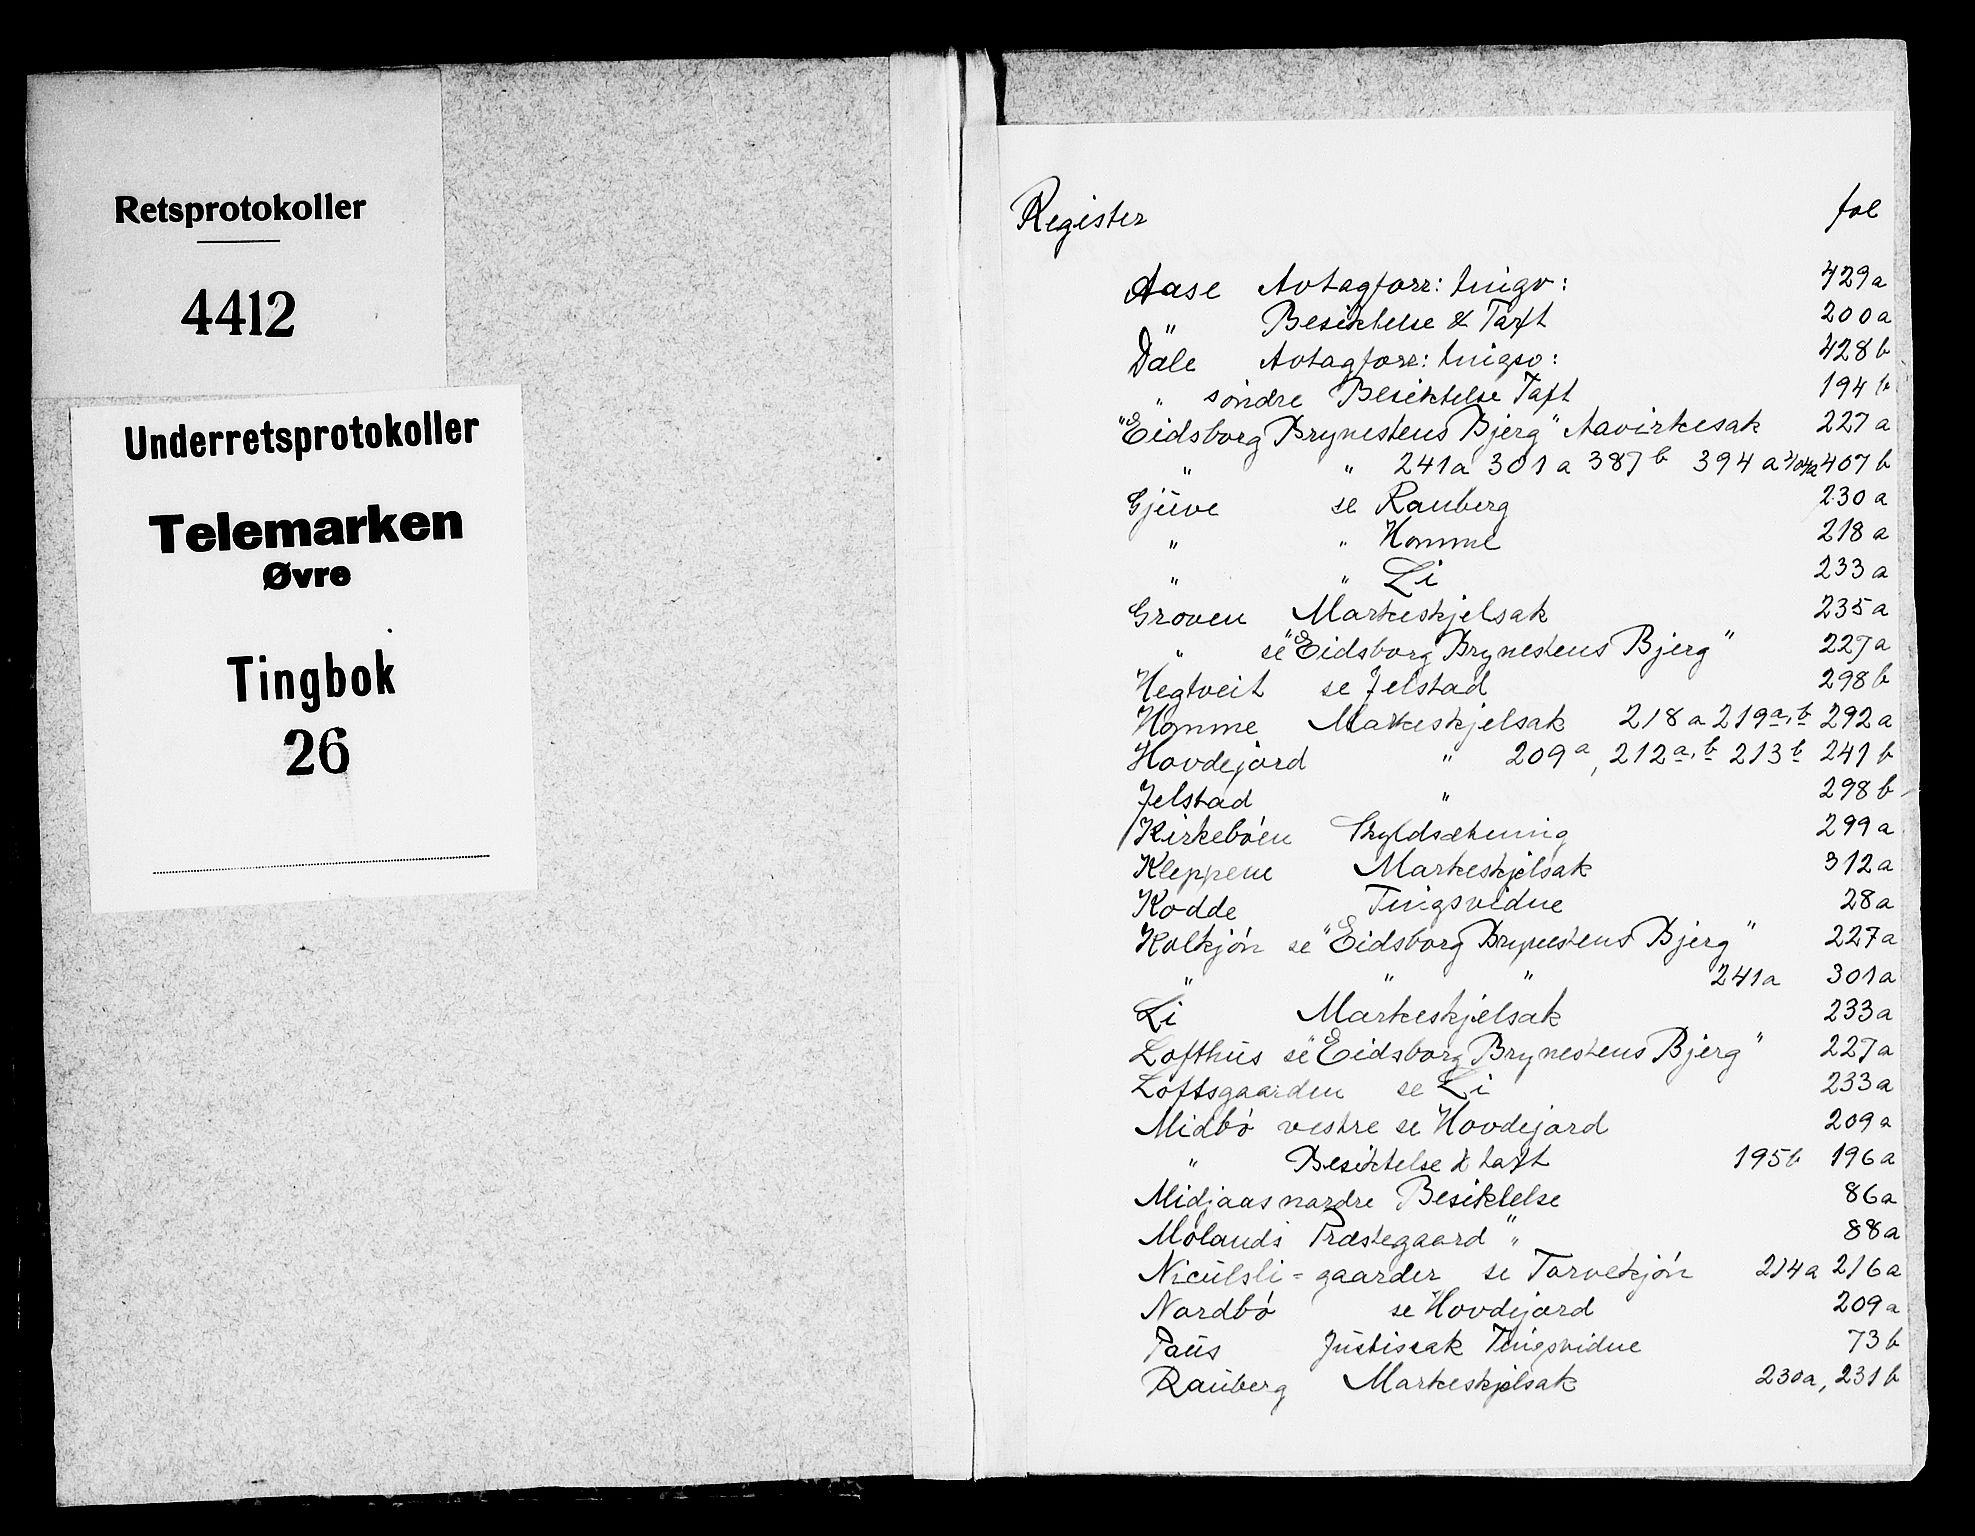 Retsprotokoller
4412
Underretsprotokoller
Telemarken
Øvre
Tingbok
26
Register fol
Aase Avtagforr: tingv: 429a
" Besiktelse & Taxt 200a
Dale Avtagforr: tingsv: 428b
" söndre Besiktelse Taxt 194b
"Eidsborg Brynestens Bjerg" Aavirkesak 227a
" " 241a 301a 387b 394a 404a 407b
Gjüve se Rauberg 230a
" " Homme 218a
" " Li 233a
Groven Markeskjelsak 235a
" se "Eidsborg Brynestens Bjerg" 227a
Hegtveit se Jelstad 298b
Homme Markeskjelsak 218a 219a,b 292a
Hovdejord " 209a, 212a,b 213b 241b
Jelstad " 298b
Kirkebóen Skyldsætning 299a
Kleppene Markeskjelsak 312a
Kodde Tingsvidne 28a
Kolkjón se "Eidsborg Brynestens Bjerg" 227a
" " " 241a 301a
Li Markeskjelsak 233a
Lofthüs se "Eidsborg Brynestens Bjerg" 227a
Loftsgaarden se Li 233a
Midbó vestre se Hovdejord 209a
" Besiktelse & taxt 195b 196a
Midjaas nordre Besiktelse 86a
Molands Præstegaard " 88a
Nicülsli-gaarder se Torvekjón 214a 216a
Nordbó se Hovdejord 209a
Paüs Jüstissak Tingsvidne 73b
Raüberg Markeskjelsak 230a, 231b